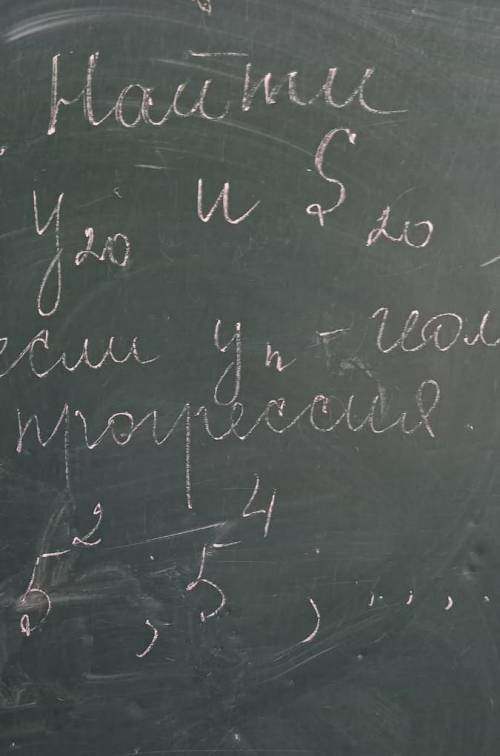 Найти
y₂₀ и S₂₀
если yₙ - геом
прогрессия.
5², 5⁴, ...,